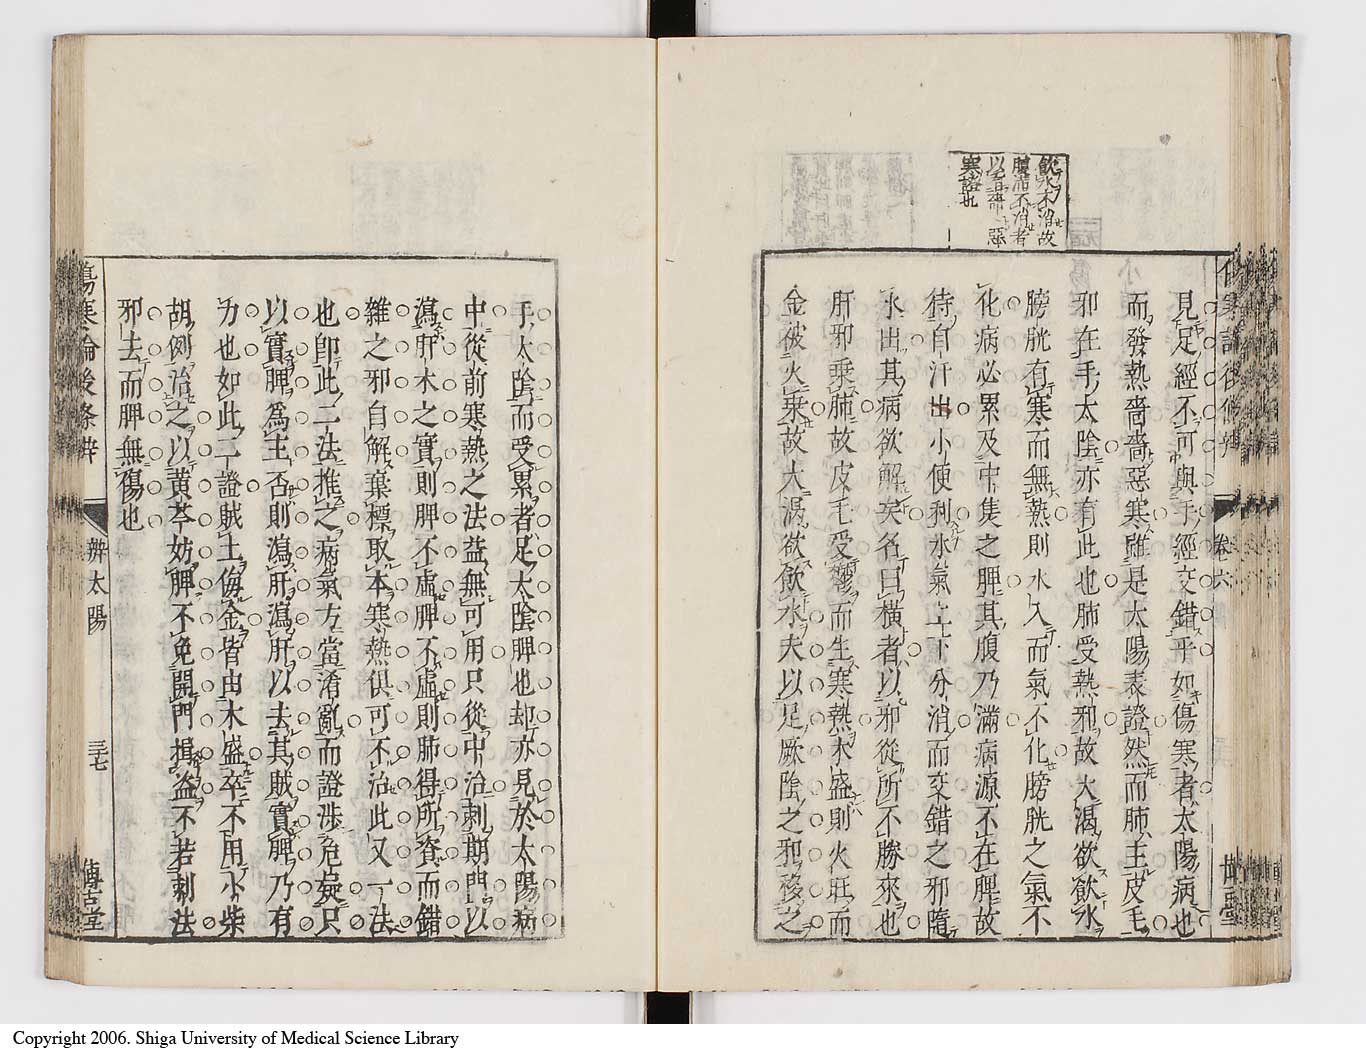 飲水不消故
腹滿不消者
以嗇嗇惡
寒諸也
見足經不可與手經交錯乎如傷寒者太陽病也
而發熱嗇嗇惡寒雖是太陽表證然而肺主皮毛
邪在手太陰亦有此也肺受熱邪故大渴欲飲水
膀胱有寒而無熱則水入而氣不化膀胱之氣不
化病必累及中焦之脾其腹乃滿病源不在脾故
待自汗出小便利水氣上下分消而交錯之邪隨
水出其病欲解矣名曰橫者以邪從所不勝來也
肝邪乘肺故皮毛受鬱而生寒熱木盛則火旺而
金被火乘故大渴欲飲水夫以足厥陰之邪移之
卷六
手太陰而受累者足太陰脾也却亦見於太陽病
中從前寒熱之法益無可用只從中治刺期門以
瀉肝木之實則脾不虛脾不虛則肺得所資而錯
雜之邪自解棄標取本寒熱俱可不治此又一法
也卽此二法推之病氣方當淆亂而證涉危疑只
以實脾爲主否則瀉肝瀉肝以去其賊實脾乃有
力也如此二證賊土侮金皆由木盛卒不用小柴
胡例治之以黃芩妨脾不免開門揖盜不若刺法
邪去而脾無傷也
傷寒論後條辨
辨太陽
三七
博古堂
Copyright 2006. Shiga University of Medical Science Library